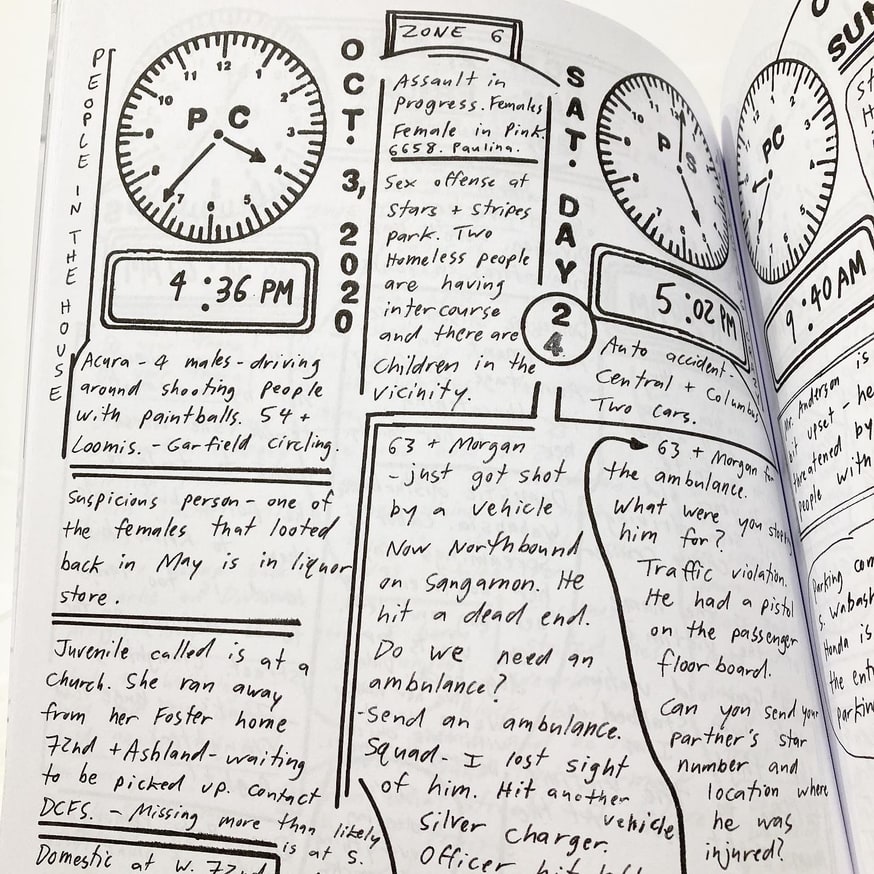 PEOPLE IN THE HOUSE
12
1
2
3
4
5
6
7
8
9
10
11
P.C
4:36 PM
OCT. 3, 2020
Acura - 4 males - driving
around shooting people
with paintballs. 54 +
Loomis. - Garfield circling.
Suspicious person - one of
the females that looted
back in May is in liquor
store.
Juvenile called is at a
church. She ran away
from her Foster home
72nd + Ashland - waiting
to be picked up. Contact
DCFS. - Missing more than likely
is at S.
Domestic at W. 72nd
ZONE 6
Assault in
Progress. Females
Female in Pink.
6658. Paulina.
Sex offense at
Stars + Stripes
park. Two
Homeless people
are having
intercourse
and there are
Children in the
vicinity.
63 + Morgan
- just got shot
by a vehicle
Now Northbound
on Sangamon. He
hit a dead end.
Do we need an
ambulance?
- Send an ambulance.
Squad - I lost sight
of him. Hit another
vehicle
Silver charger.
Officer hit left
SAT. DAY
24
P S
5:02 PM
Auto accident -
Central + Columbus
Two cars.
63 + Morgan for
the ambulance.
What were you
him for?
Traffic violation.
He had a pistol
on the passenger
floor board.
Can you send your
partner's star
number and
location where
he was
injured?
SUN
PC
9:40 AM
Mr. Anderson is
bit upset - he
threatened by
people with
Parking
S. Wabash
Honda is
the
parking